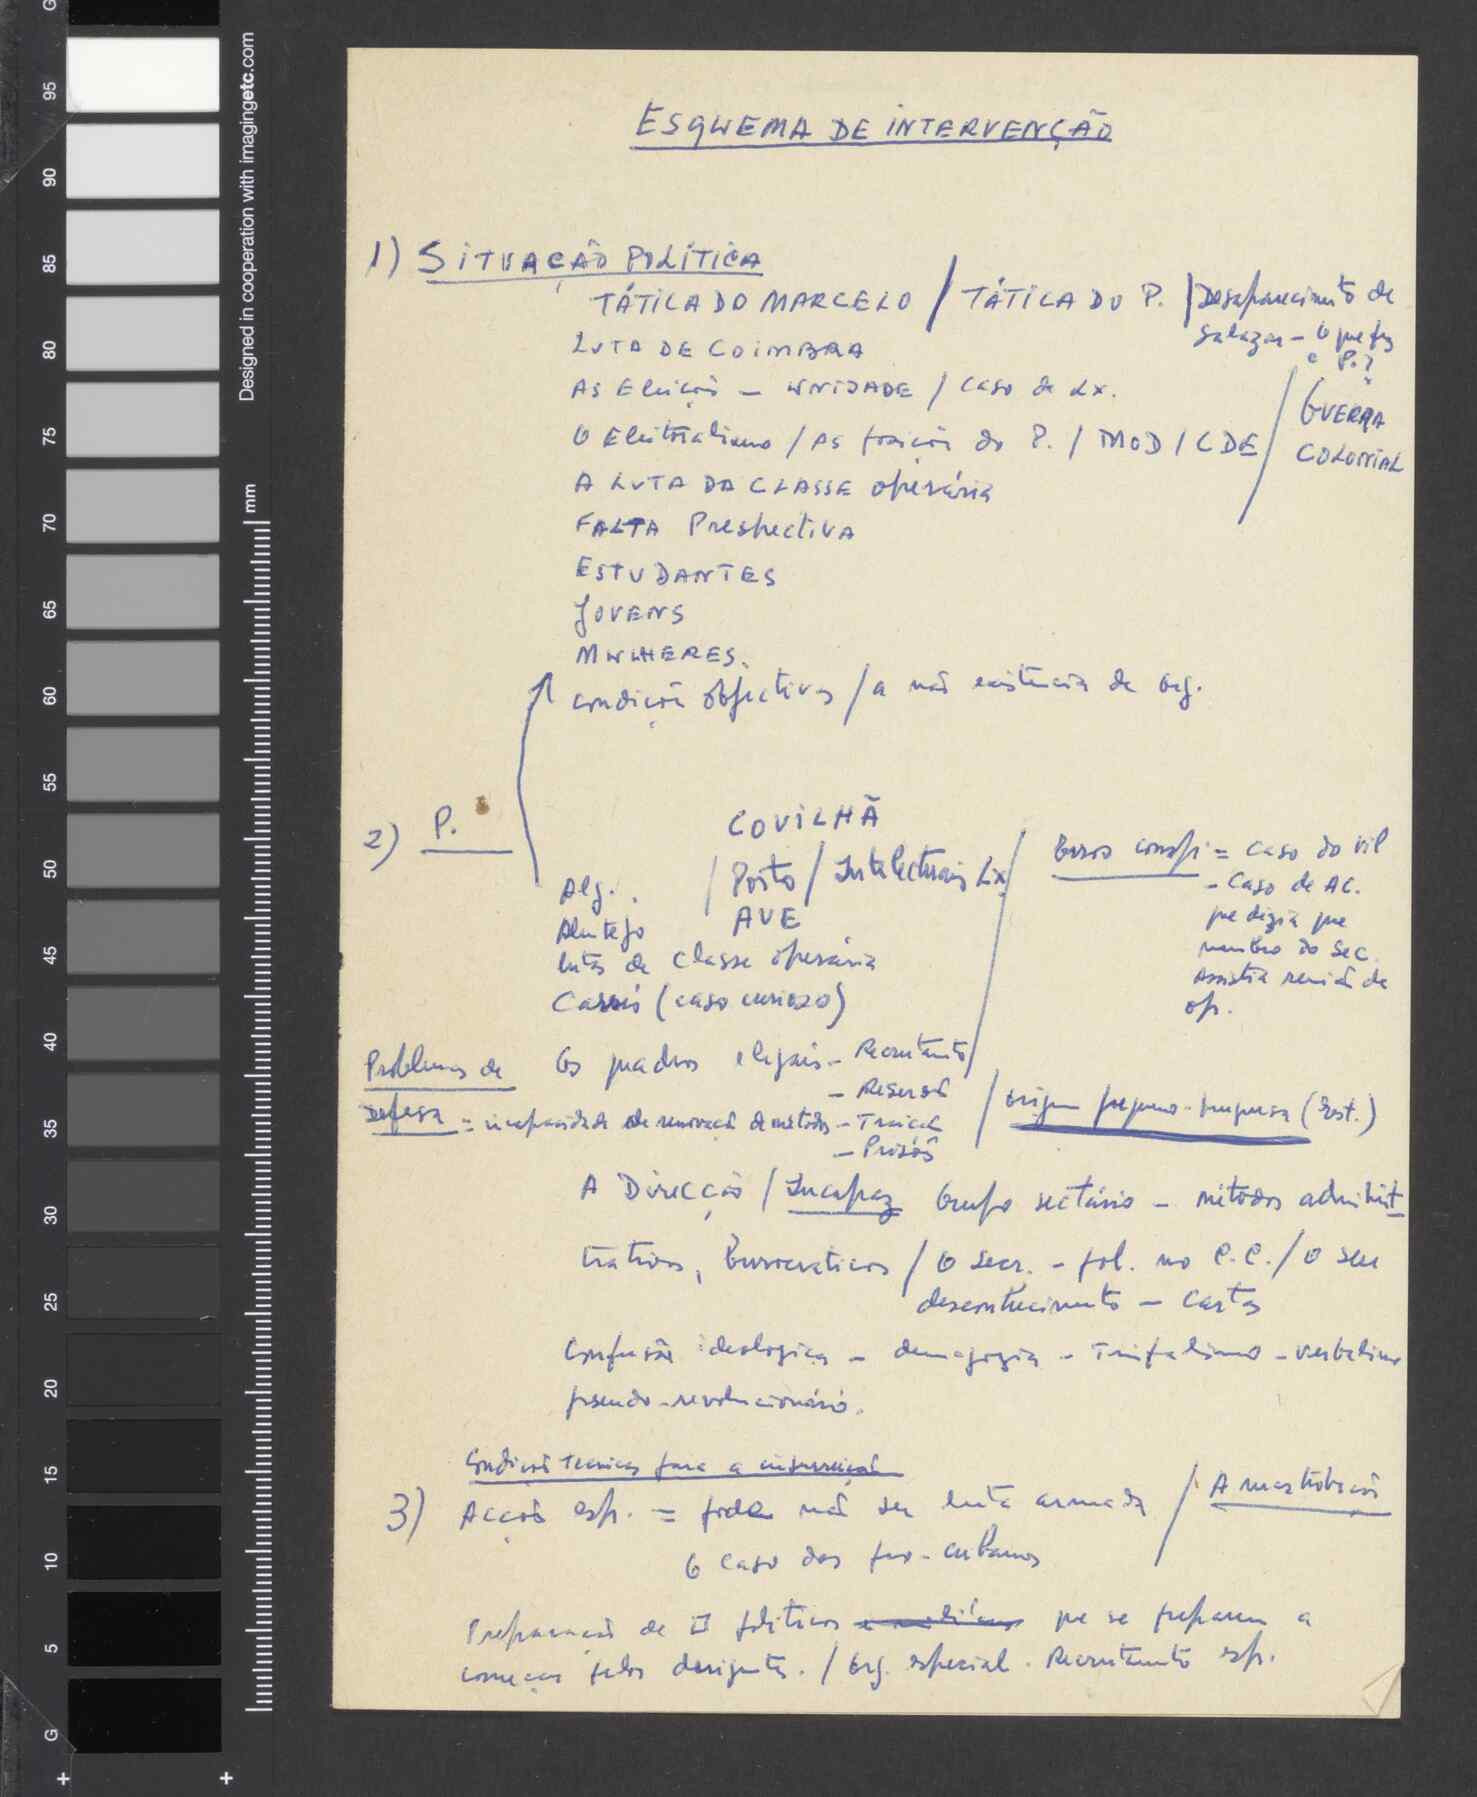 ESQUEMA DE INTERVENÇÃO
1) SITUAÇÃO POLÍTICA
TÁTICA DO MARCELO / TÁTICA DO P. / Desaparecimento de
Salazar - O que fez
o P.?
LUTA DE COIMBRA
AS Eleições - UNIDADE / Caso de Lx.
O Eleitoralismo / As posições do P. / MOD / CDE / GUERRA
COLONIAL
A LUTA DA CLASSE operária
FALTA PrespectiVA
ESTUDANTES
JOVENS
MULHERES.
condições objectivas / a não existência de org.
2) P.
COVILHÃ
Alg. / Porto / Intelectuais Lx /
Alentejo AVE
lutas da classe operária
(caso curioso)
consp. = caso do
- Caso de AC.
que dizia que
membro do Sec.
Assistia reunião de
op.
Problemas de
Defesa = incapacidade de renovação de métodos
Os quadros ilegais - Recrutamento
- Deserção
- Traição
- Prisões
/ origem pequeno-burguesa (Est.)
A Direcção / Incapaz Grupo sectário - métodos administ-
trativos, Burocraticos / O Secr. - pol. no C.C. / O seu
desconhecimento - Cartas
Confusão ideologica - demagogia - - verbalismo
pseudo-revolucionário.
Condições tecnicas para a insurreição
3) Acções esp. = pode não ser luta armada /
O caso dos pro-cubanos
Preparação de políticos que se preparem a
começar pelos dirigentes. / Org. especial. Recrutamento esp.
Designed in cooperation with imagingetc.com
mm
G
95
90
85
80
75
70
65
60
55
50
45
40
35
30
25
20
15
10
5
G